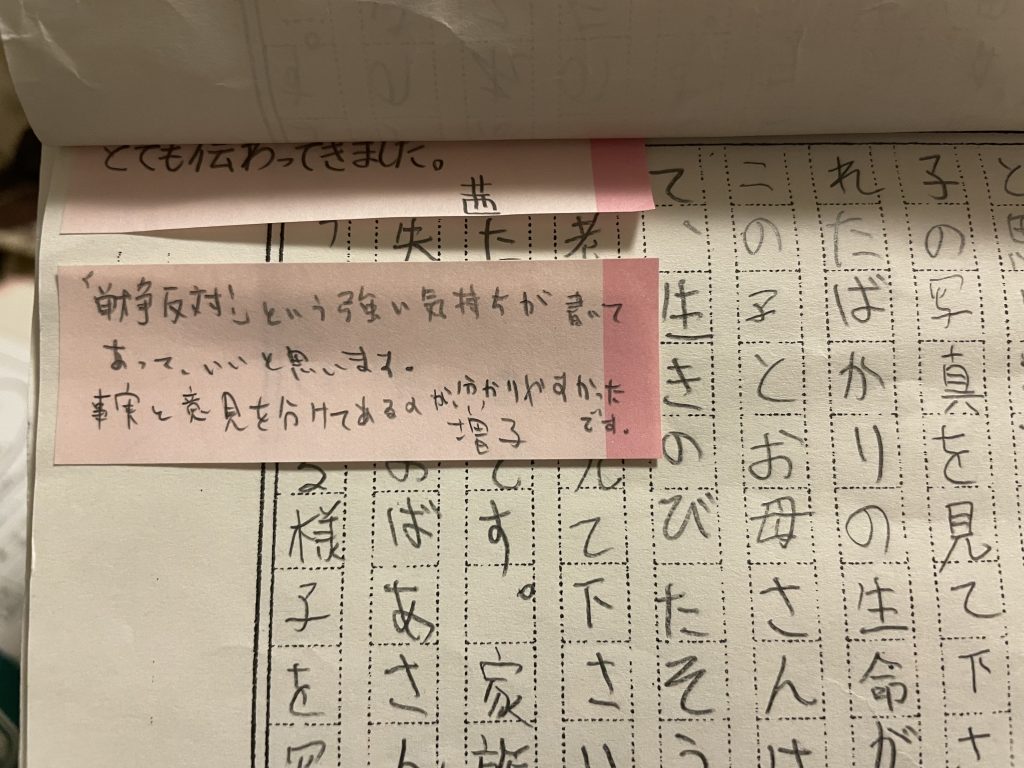 と思
子の写真を見て下さ
れたばかりの生命が
この子とお母さんは
て、生きのびたそう
老
見て下さい
た
です。家族
失
のばあさん
る様子を写
とても伝わってきました。
茜
「戦争反対!」という強い気持ちが書いて
あって、いいと思います。
事実と意見を分けてあるのが、分かりやすかった
です。
増子